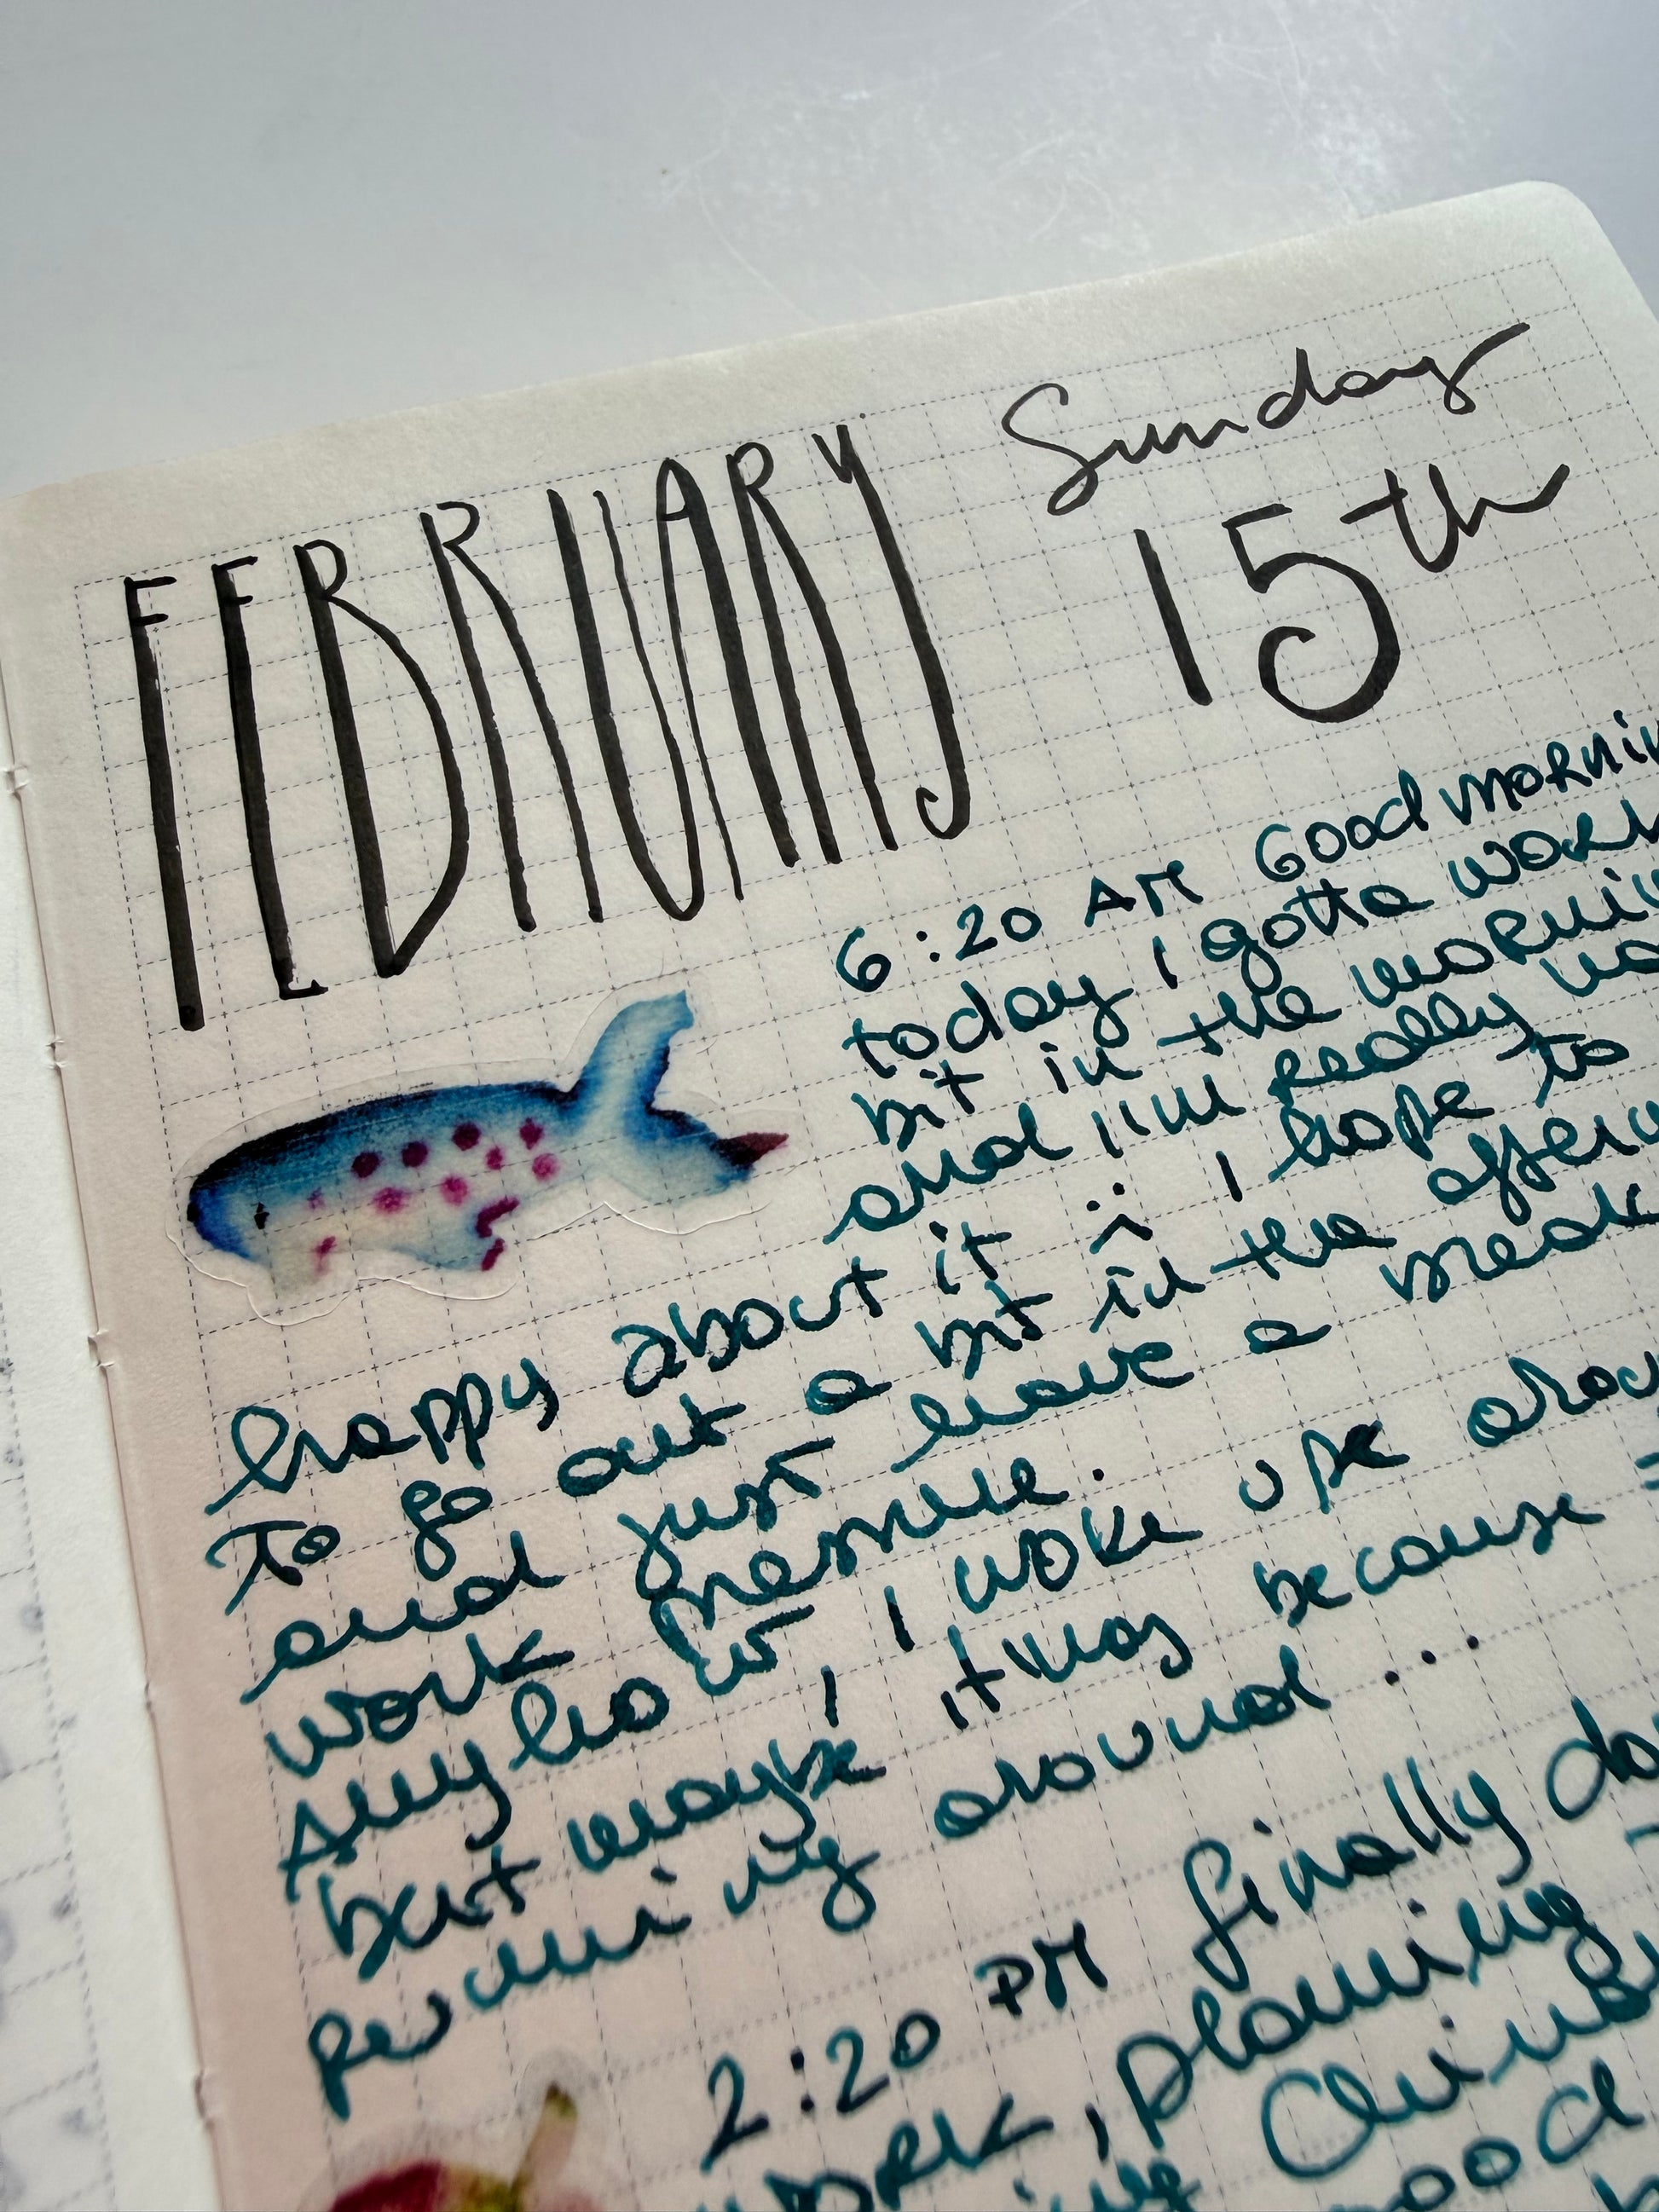 FEBRUARY
Sunday
15th
6:20 AM Good mornin
today I gotta work
bit in the mornin
and I'm really no
happy about it :( I hope to
to go out a bit in the aftern
and just have a break
work
Anyhow, I woke upe arou
but maybe, it was because
running around...
2:20 PM finally do
work, planning
ing Chin
ood